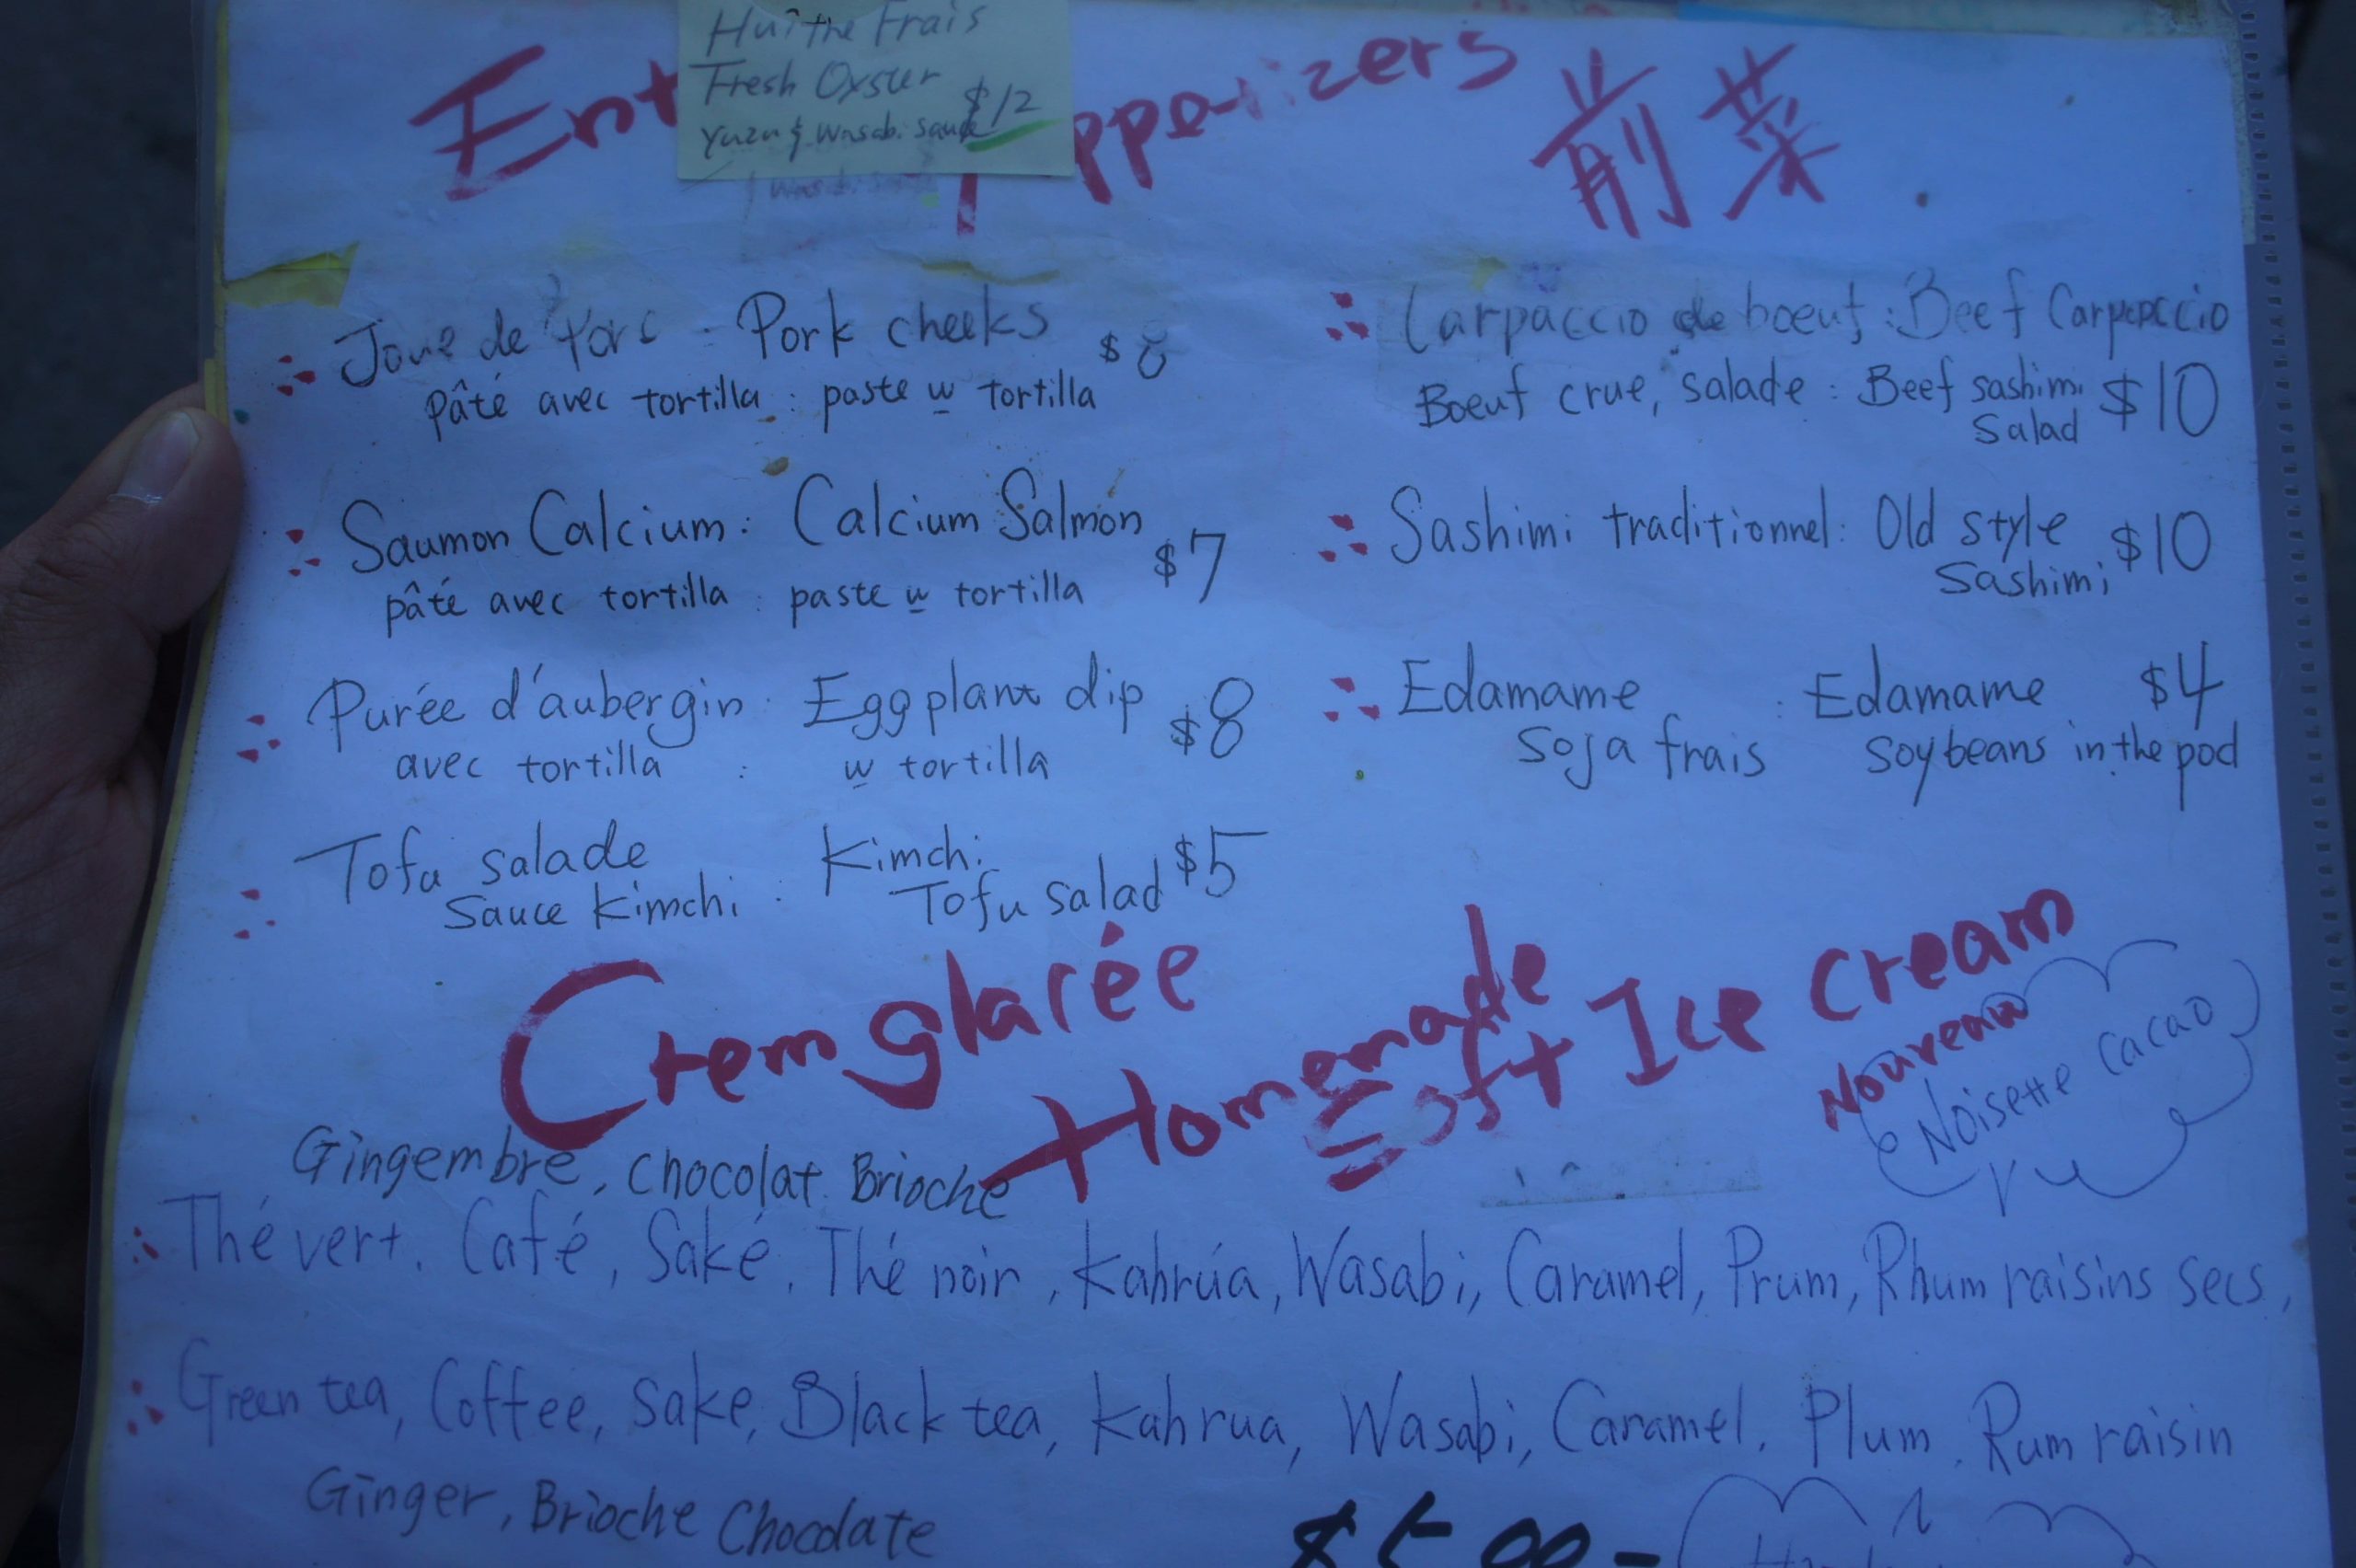 Huitre Frais
Fresh Oyster
Yuzu & Wasabi sauce $12
Ent
ppetizers 前菜
Joue de Porc : Pork cheeks $8
pâté avec tortilla : paste w tortilla
Saumon Calcium : Calcium Salmon $7
pâté avec tortilla : paste w tortilla
Purée d'aubergin : Eggplant dip $8
avec tortilla : w tortilla
Tofu salade : Kimchi $5
Sauce Kimchi Tofu salad
Carpaccio de boeuf : Beef Carpaccio
Boeuf crue, salade : Beef sashimi $10
Salad
Sashimi traditionnel : Old style $10
Sashimi
Edamame : Edamame $4
Soja frais Soybeans in the pod
Crem glacée
Homemade
Soft Ice Cream
Nouveau
Noisette Cacao
Gingembre, Chocolat Brioche
Thé vert, Café, Saké, Thé noir, Kahrúa, Wasabi, Caramel, Prum, Rhum raisins secs,
Green tea, Coffee, Sake, Black tea, Kahrua, Wasabi, Caramel, Plum, Rum raisin
Ginger, Brioche Chocolate
$5.00-